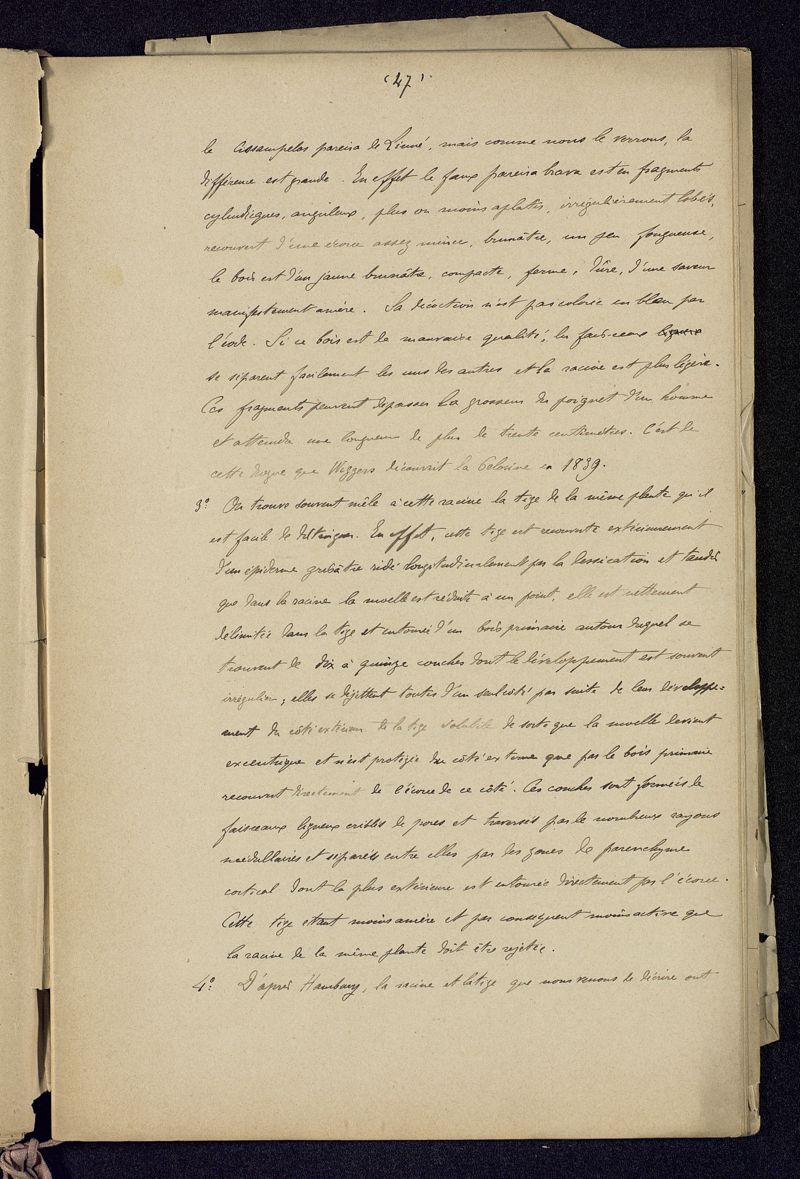 (47)
le Cissampelos pareira de Linné, mais comme nous le verrons, la
différence est grande. En effet le faux pareira brava est en fragments
cylindriques, anguleux, plus ou moins aplatis, irrégulièrement lobés,
recouvert d'une écorce assez mince, brunâtre, un peu fongueuse,
le bois est d'un jaune brunâtre, compacte, ferme, dûre, d'une saveur
manifestement amère. Sa décoction n'est pas colorée en bleu par
l'iode. Si ce bois est de mauvaise qualité, les faisceaux ligneux
se séparent facilement les uns des autres et la racine est plus légère.
Ces fragments peuvent dépasser la grosseur du poignet d'un homme
et atteindre une longueur de plus de trente centimètres. C'est de
cette drogue que Wiggers découvrit la Pelosine en 1839.
3° On trouve souvent mêlé à cette racine la tige de la même plante qu'il
est facile de distinguer. En effet, cette tige est recouverte extérieurement
d'un épiderme grisâtre ridé longitudinalement par la dessication et tandis
que dans la racine la moelle est réduite à un point, elle est nettement
délimitée dans la tige et entourée d'un bois primaire autour duquel se
trouvent de dix à quinze couches dont le développement est souvent
irrégulier; elles se dejettent toutes d'un seul côté par suite de leur développe-
ment du côté extérieur de la tige volubile de sorte que la moelle devient
excentrique et n'est protégée du côté externe que par le bois primaire
recouvert directement de l'écorce de ce côté. Ces couches sont formées de
faisceaux ligneux criblés de pores et traversés par de nombreux rayons
médullaires et séparées entre elles par des zones de parenchyme
cortical dont la plus extérieure est entourée directement par l'écorce.
Cette tige étant moins amère et par conséquent moins active que
la racine de la même plante doit être rejetée.
4° D'après Hanbury, la racine et la tige que nous venons de décrire ont